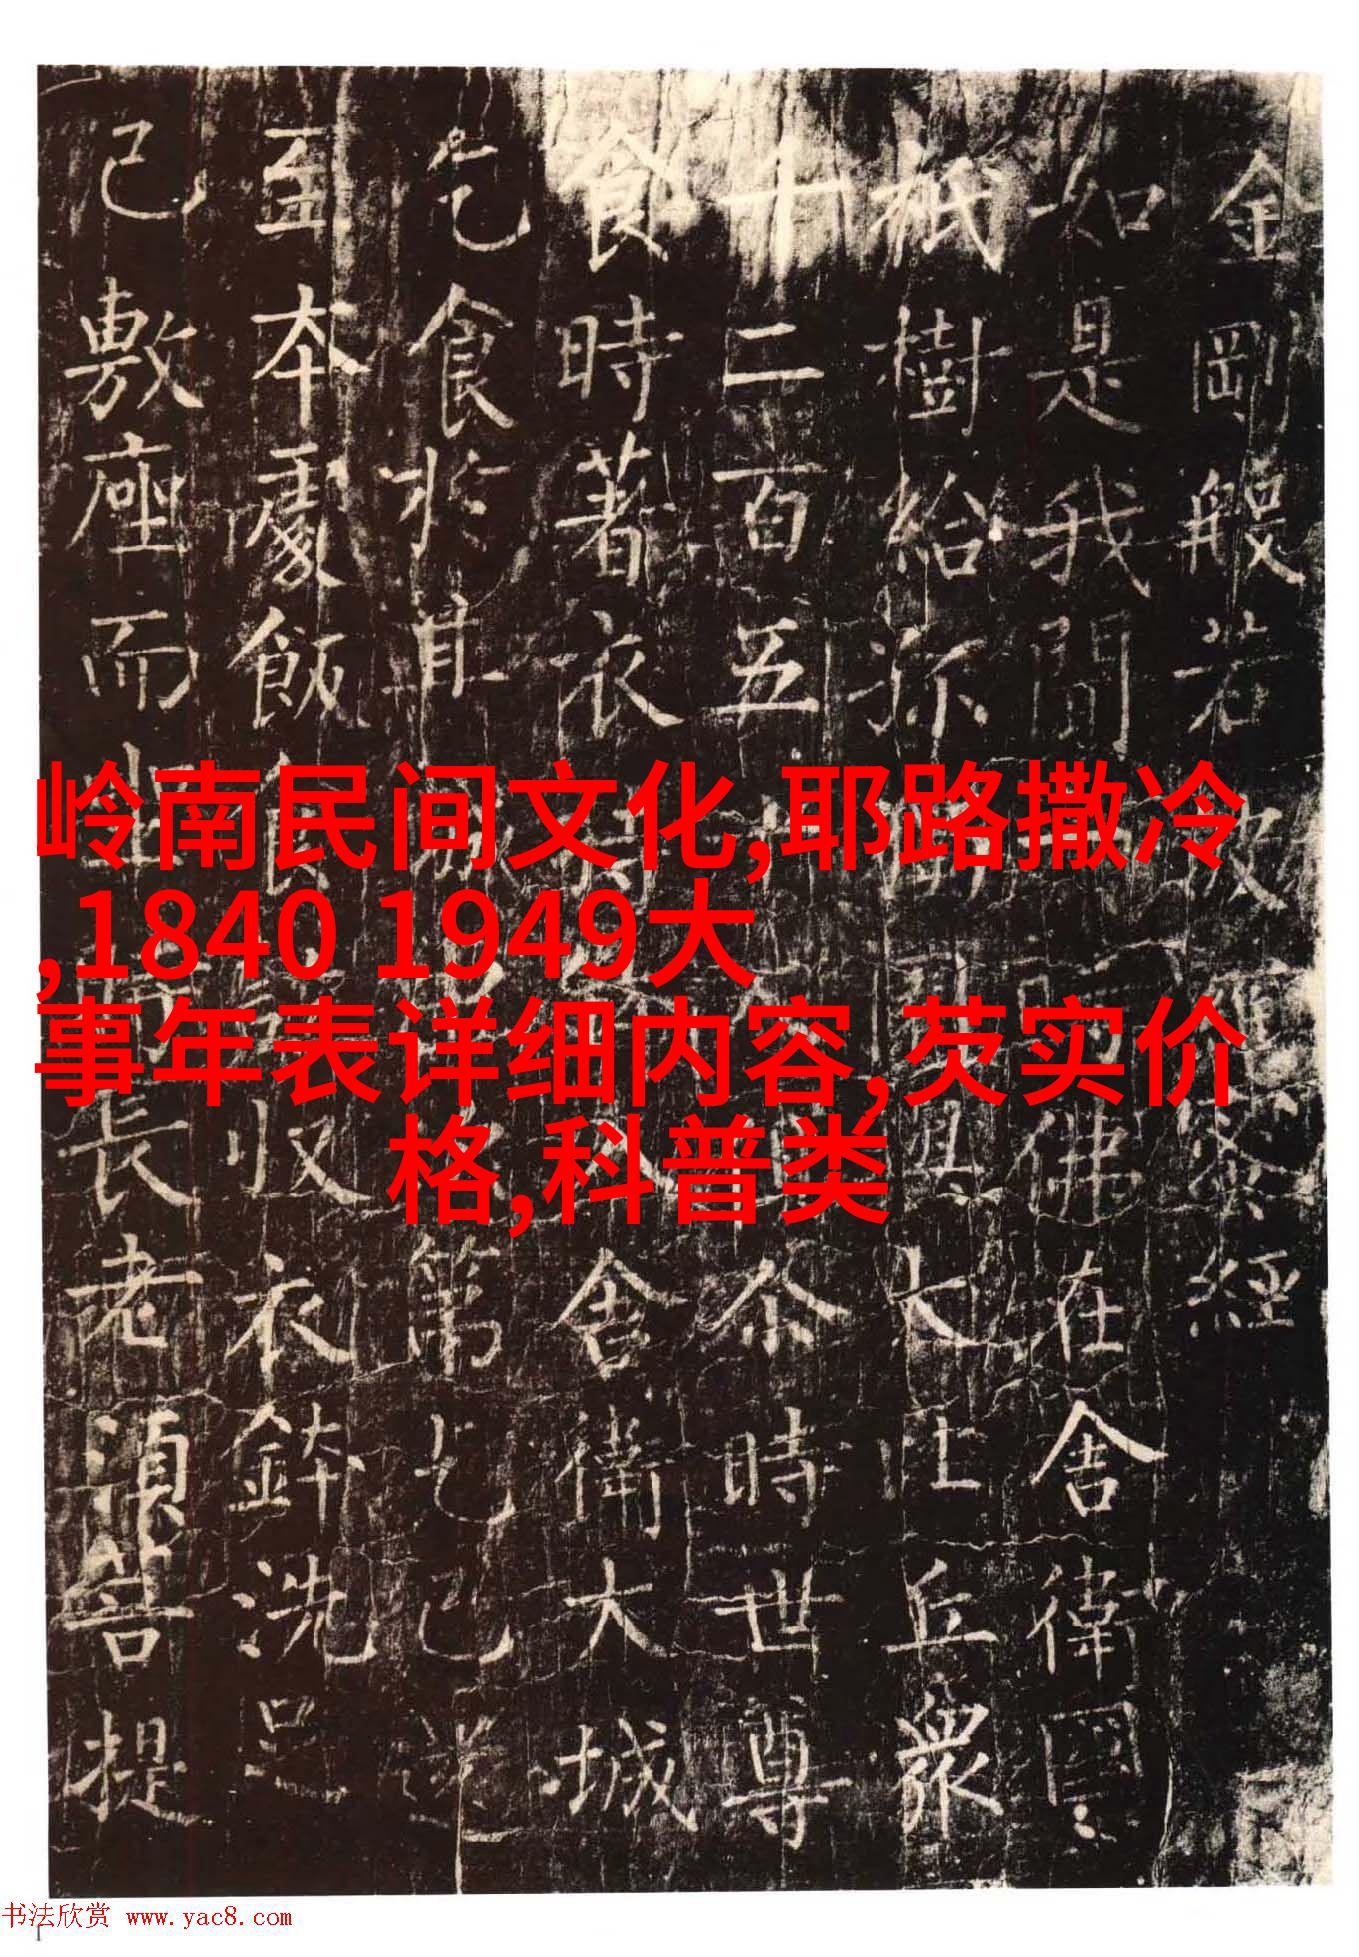 金剛般若波羅蜜經
如是我聞佛在舍衛國
祇樹給大比丘眾
十二百五尒時世尊
食時著衣舍衛大城
乞食於其第乞已還
至本處飯食收衣鉢洗足
已敷座而坐長老須菩提
岭南民间文化,耶路撒冷
,1840 1949大
事年表详细内容,芡实价
格,科普类
书法欣赏 www.yac8.com